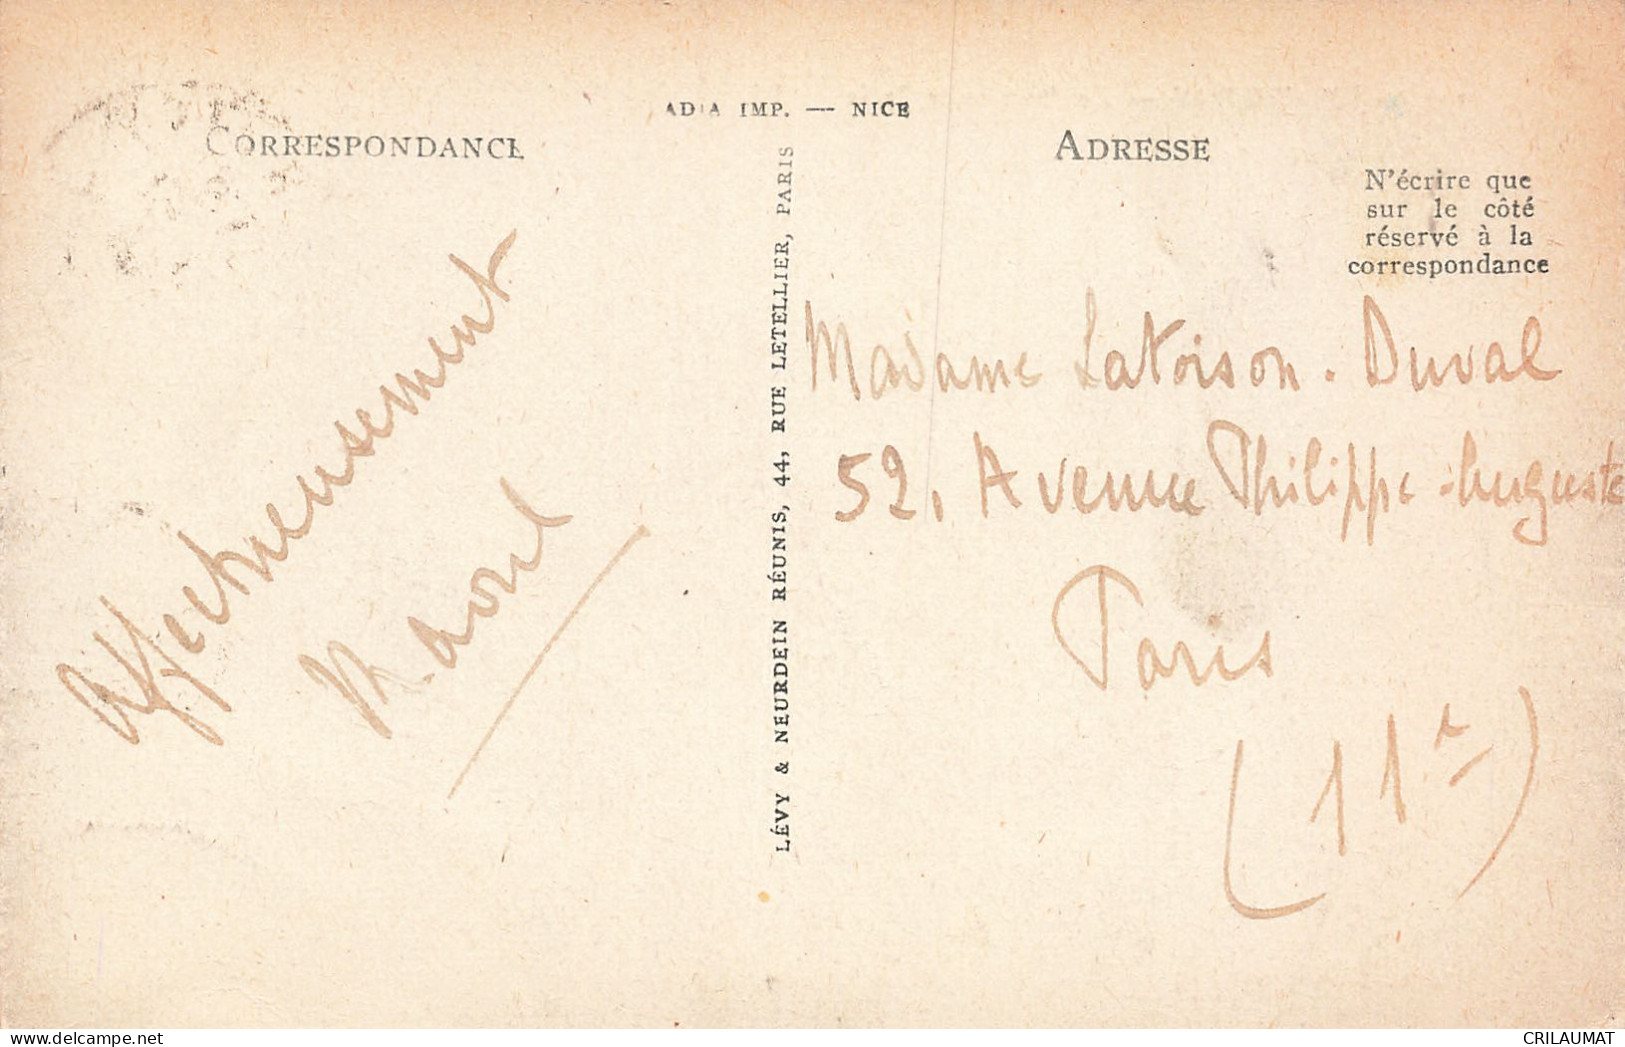 ADIA IMP. — NICE
CORRESPONDANCE
ADRESSE
N'écrire que
sur le côté
réservé à la
correspondance
LÉVY & NEURDEIN RÉUNIS, 44, RUE LETELLIER, PARIS
Affectueusement
Raoul
Madame Latoison. Duval
52, Avenue Philippe Auguste
Paris
(11e)
CRILAUMAT